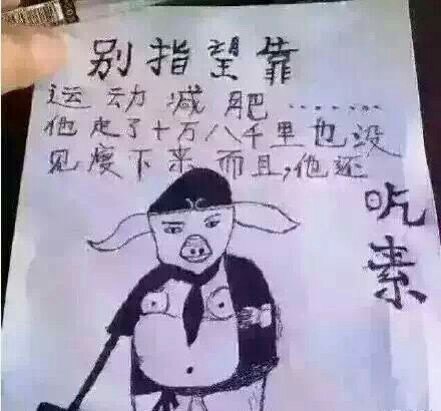 别指望靠
运动减肥……
他走了十万八千里也没
见瘦下来而且,他还
吃素